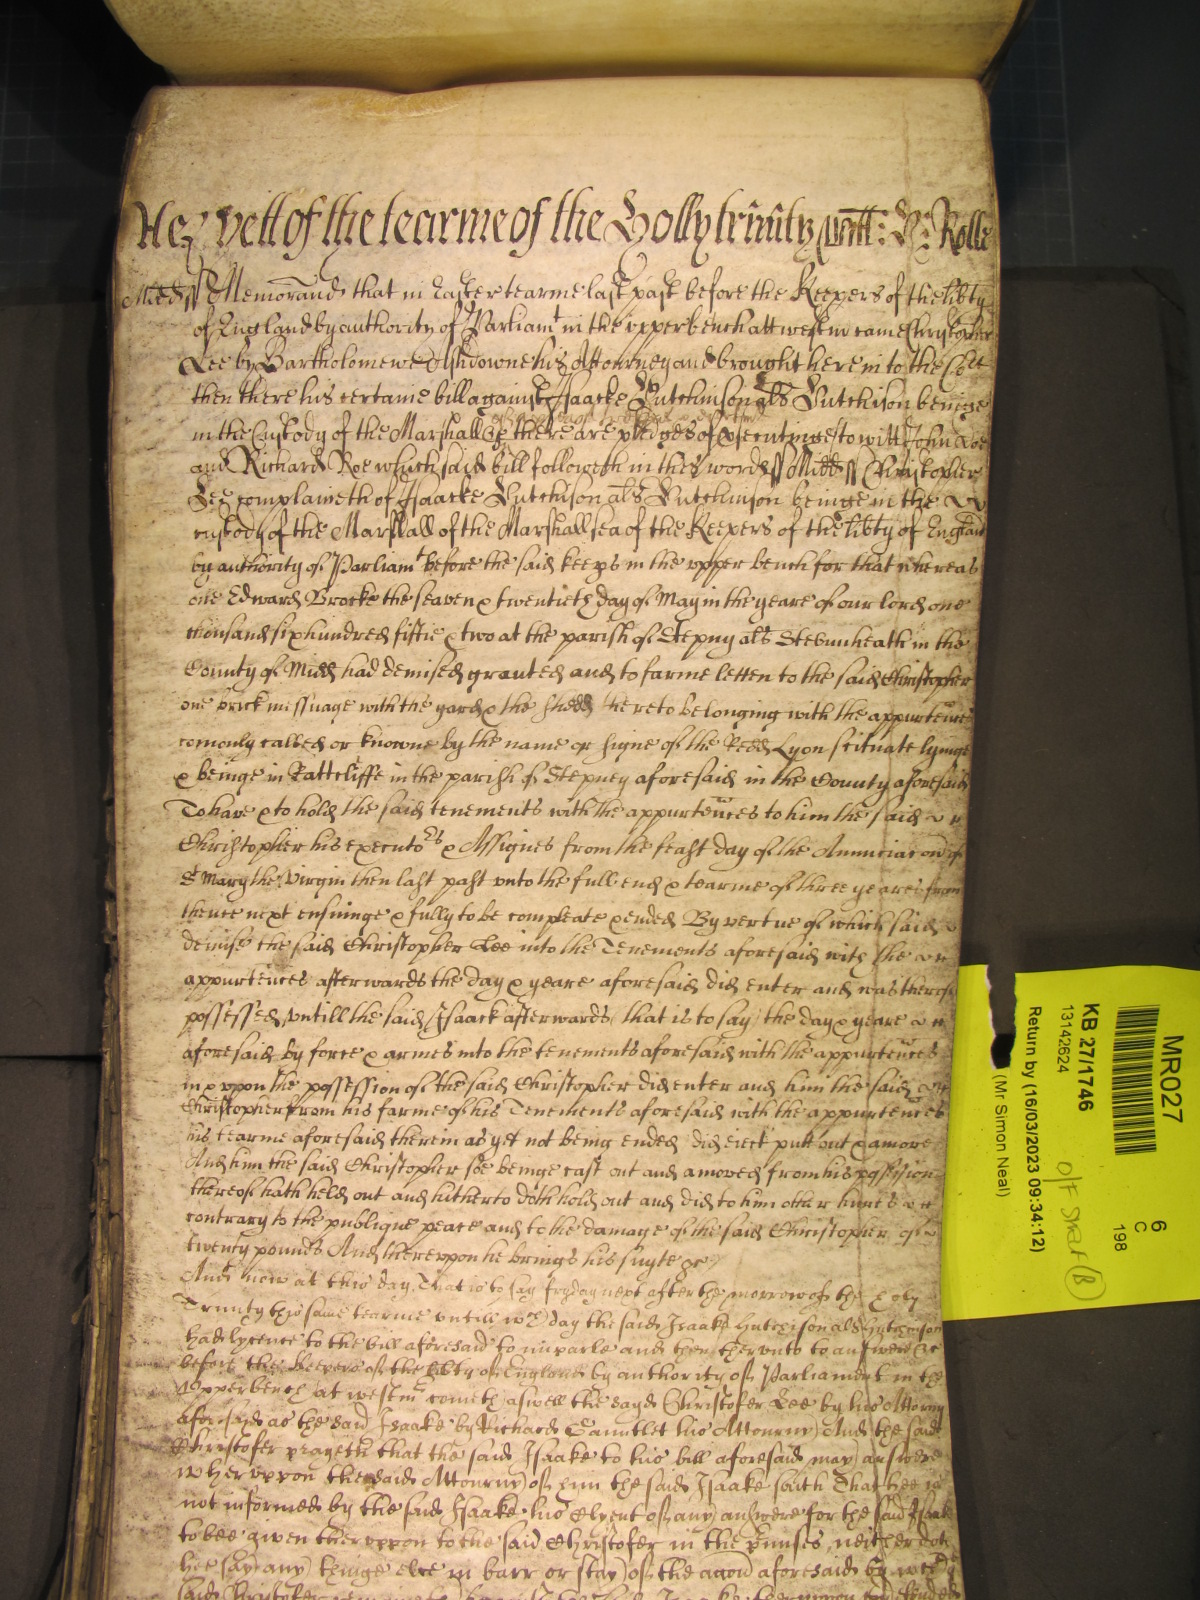 yett of the tearme of the Holly trinity Rolle
Midds Memorand that in Easter tearme last past before the Keepers of the libty
of England by authority of Parliamt in the upper bench att westmr came Christopher
Lee by Bartholomewe Ashdowne his Attorney and brought here into the Cort
then there his certaine bill against Isaacke Hutchinson als Hutchison beinge
in the Custody of the Marshall &c there are pledges of psecutinge to witt John Doe
and Richard Roe which said bill followeth in thes words ss Midds ss Christopher
Lee complaineth of Isaacke Hutchison als Hutchinson beinge in the
custody of the Marshall of the Marshallsea of the Keepers of the libty of England
by authority of Parliamt before the said keeps in the upper bench for that whereas
one Edward Brocke the seaven & twentieth day of May in the yeare of our lord one
thousand six hundred fiftie & two at the parish of Stepny als Stebunheath in the
County of Midd had demised granted and to farme letten to the said Christopher
one brick messuage with the yard & the shedd thereto belonging with the appurtences
comonly called or knowne by the name or signe of the Redd Lyon scituate lyinge
& beinge in Rattcliffe in the parish of Stepney aforesaid in the County aforesaid
To have & to hold the said tenements with the appurtences to him the said
Christopher his executors & Assignes from the feast day of the Annunciacon of
St Mary the Virgin then last past unto the full end & tearme of three yeares from
thence next ensuinge & fully to be compleate & ended By vertue of which said
demise the said Christopher Lee into the Tenements aforesaid with the
appurtences afterwards the day & yeare aforesaid did enter and was thereof
possessed, untill the said Isaack afterwards, that is to say, the day & yeare
aforesaid by force & armes into the tenements aforesaid with the appurtences
in & uppon the possession of the said Christopher did enter and him the said
Christopher from his farme of his Tenements aforesaid with the appurtences
his tearme aforesaid therein as yet not being ended did eiect putt out & amove
And him the said Christopher soe beinge cast out and amoved from his possession
thereof hath held out and hitherto doth hold out and did to him other harmes
contrary to the publique peace and to the damage of the said Christopher of
twenty pounds And thereuppon he brings his suyte &c
And now at this day, That is to say fryday next after the morrow of the holy
Trinity this same tearme untill wch day the said Isaake Hutchison als Hutchinson
had lycence to the bill aforesaid to imparle and then thereunto to answere &c
before the Keepers of the libty of England by authority of Parliament in the
Upperbench at westmr cometh aswell the sayd Christofer Lee by his Attorny
aforesayd as the said Isaake by Richard Gauntlet his Attourny And the said
Christofer prayeth that the said Isaake to his bill aforesaid may answere
whereuppon the said Attourny of him the said Isaake saith That hee is
not informed by the said Isaake his Clyent of any answere for the said Isaake
to bee given thereuppon to the said Christofer in the pmises, neither doth
hee say any thinge else in barr or stay of the accon aforesaid by wch the
said Christofer
MR027
KB 27/1746
13142624
Return by (16/03/2023 09:34:12)
(Mr Simon Neal)
6
C
198